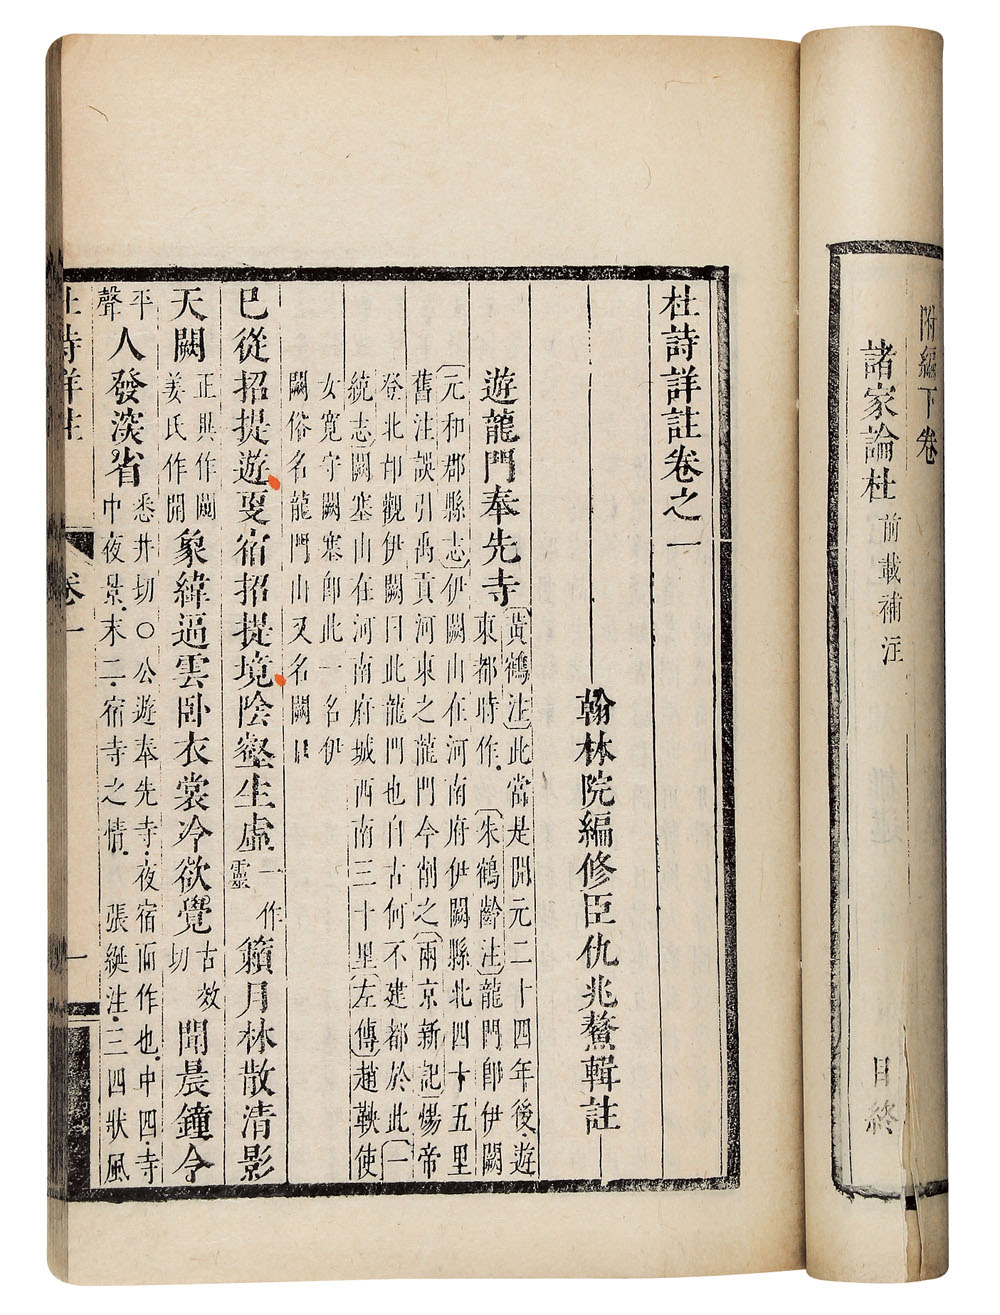 附編下卷
諸家論杜 前載補注
目終
杜詩詳註卷之一
翰林院編修臣仇兆鰲輯註
遊龍門奉先寺 黃鶴注此當是開元二十四年後遊
東都時作 朱鶴齡注龍門即伊闕
元和郡縣志伊闕山在河南府伊闕縣北四十五里
舊注誤引禹貢河東之龍門今削之兩京新記煬帝
登北邙觀伊闕曰此龍門也自古何不建都於此一
統志闕塞山在河南府城西南三十里左傳趙鞅使
女寬守闕塞即此一名伊
闕俗名龍門山又名闕口
已從招提遊更宿招提境陰壑生虛一作靈籟月林散清影
天闕正異作闚姜氏作開象緯逼雲臥衣裳冷欲覺古效切聞晨鐘令
平聲人發深省悉井切〇公遊奉先寺夜宿而作也中四寺
中夜景末二宿寺之情 張綖注三四狀風
杜詩詳註
卷一
一